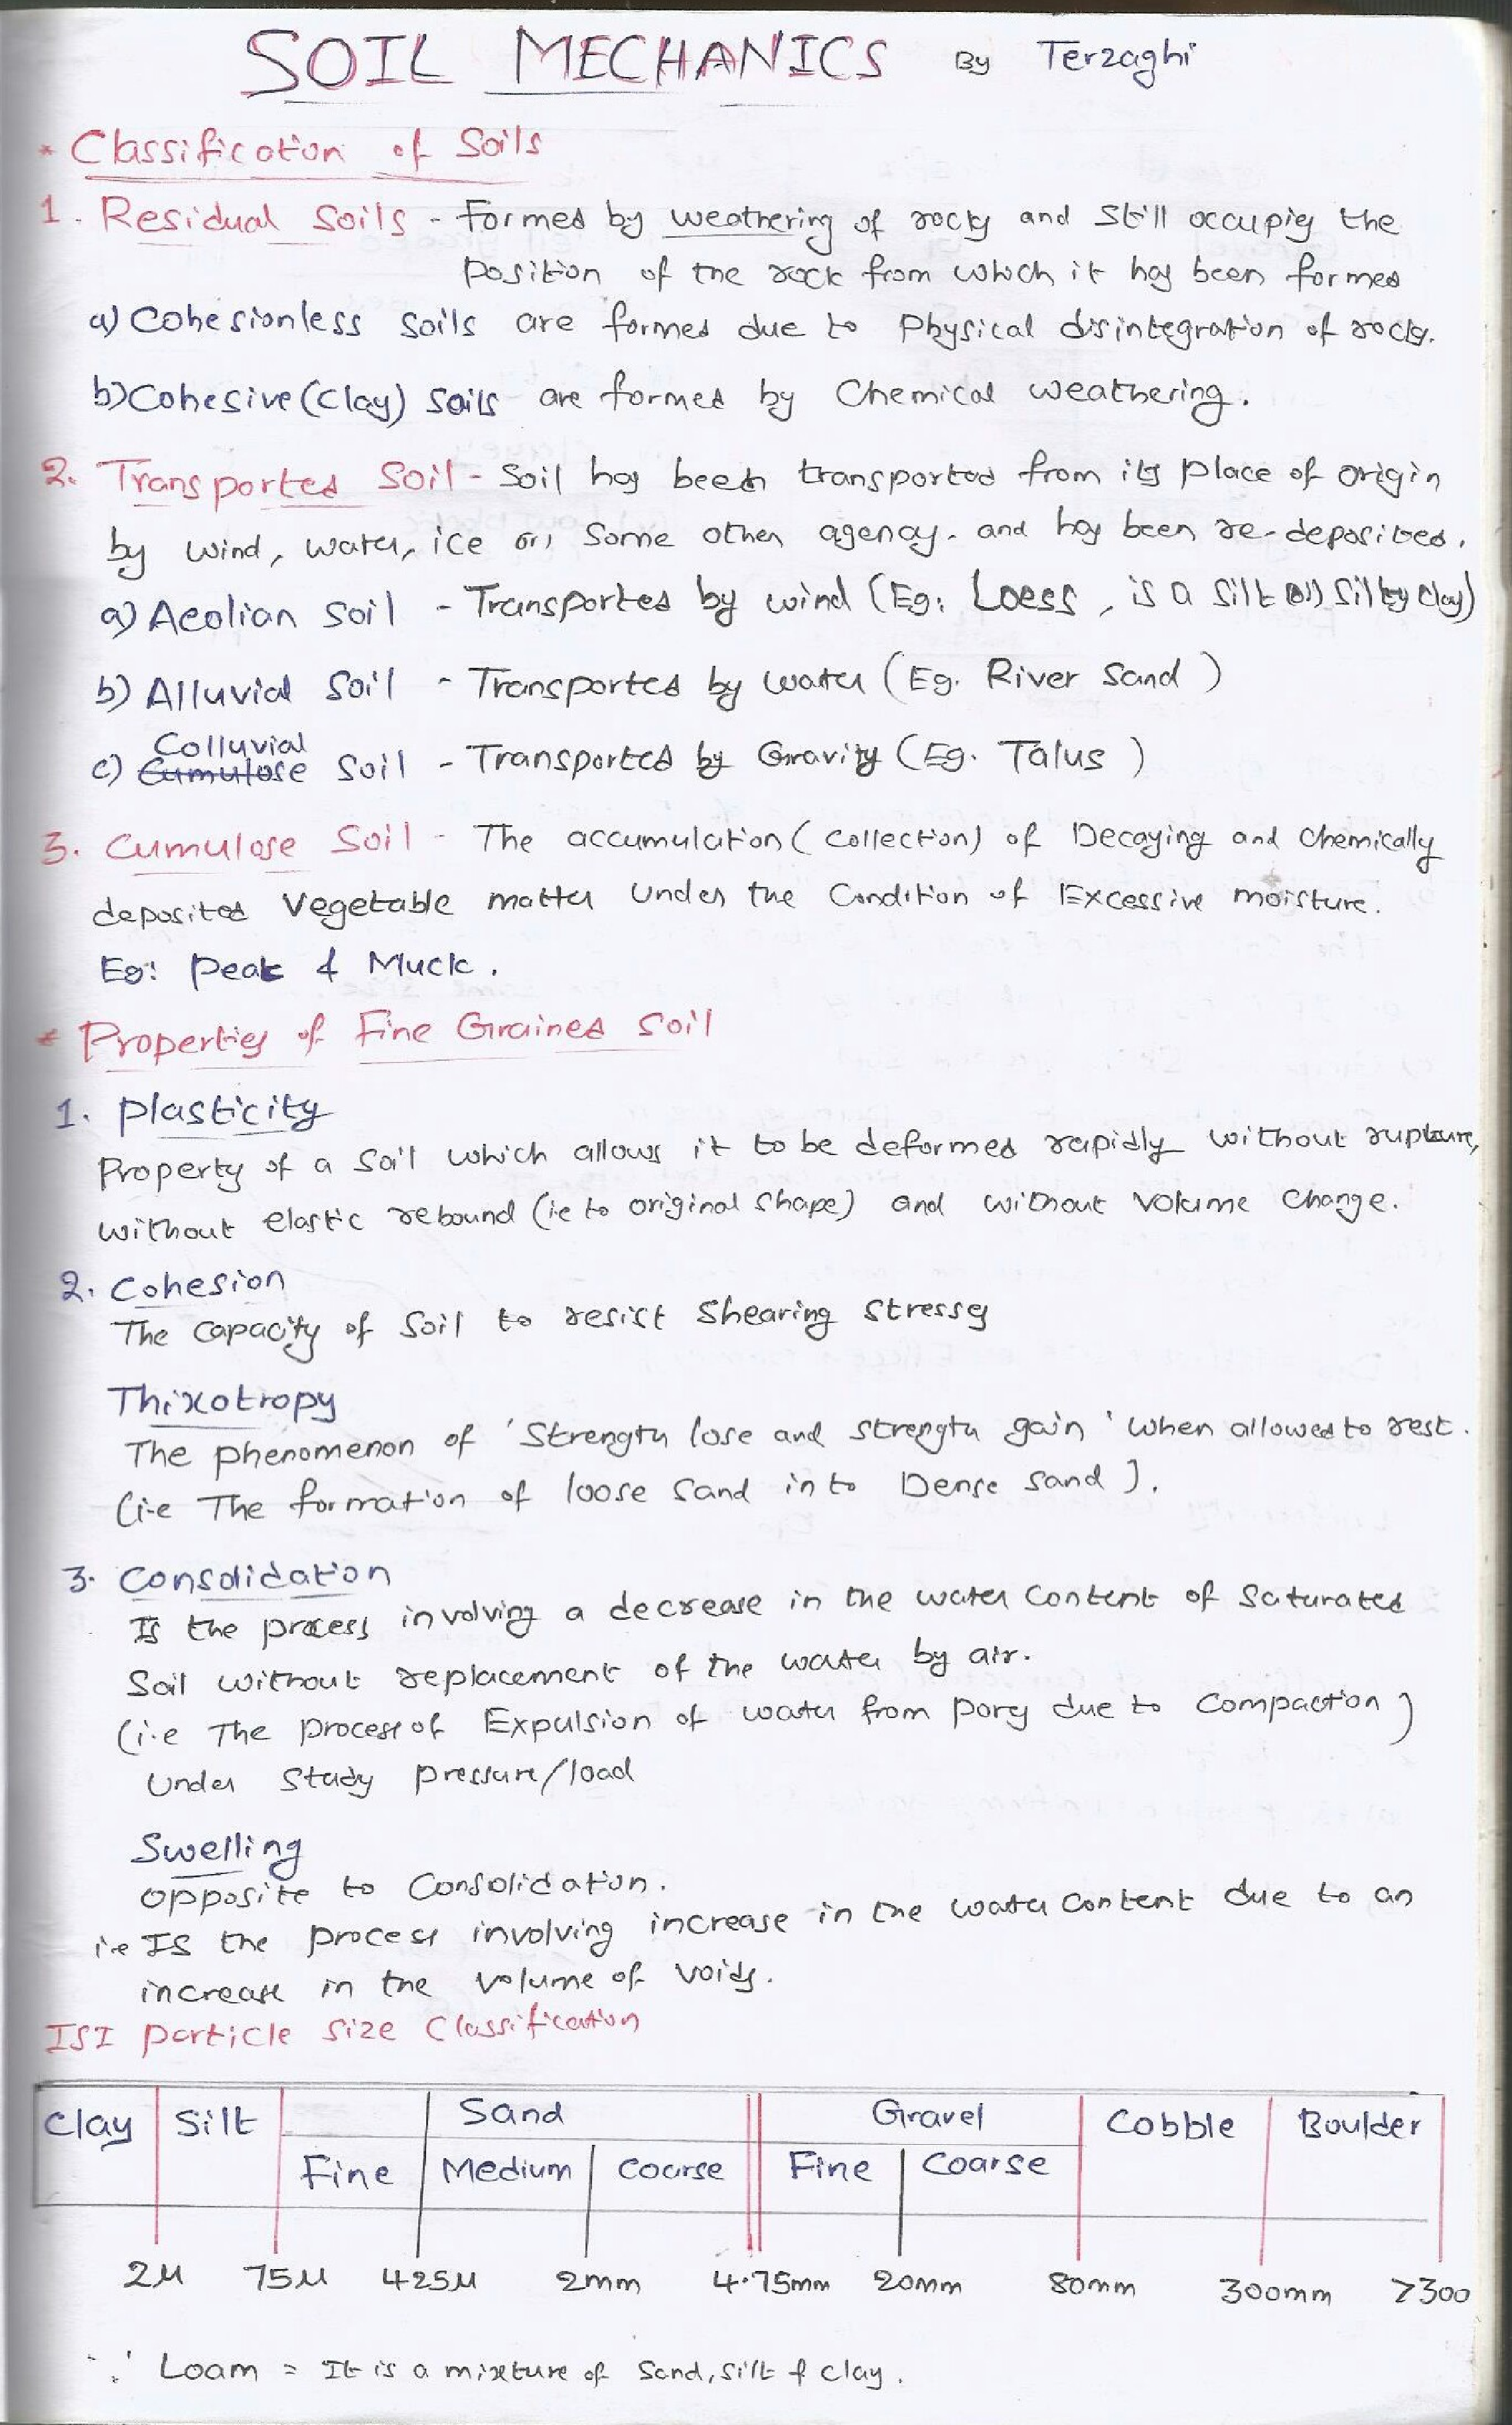 SOIL MECHANICS By Terzaghi
* Classification of Soils
1. Residual Soils - Formed by weathering of rocks and still occupies the
position of the rock from which it has been formed
a) Cohesionless soils are formed due to Physical disintegration of rocks.
b) Cohesive (Clay) soils are formed by Chemical weathering.
2. Transported Soil - Soil has been transported from its place of origin
by wind, water, ice (or) some other agency. and has been re-deposited.
a) Aeolian soil - Transported by wind (Eg: Loess, is a silt (or) silty clay)
b) Alluvial soil - Transported by water (Eg. River Sand)
Colluvial
c) Cumulose soil - Transported by Gravity (Eg. Talus)
3. Cumulose Soil - The accumulation (collection) of Decaying and chemically
deposited Vegetable matter under the Condition of Excessive moisture.
Eg: Peat & Muck.
* Properties of Fine Grained soil
1. Plasticity
Property of a soil which allows it to be deformed rapidly without rupture,
without elastic rebound (ie to original shape) and without volume change.
2. Cohesion
The capacity of soil to resist shearing stresses
Thixotropy
The phenomenon of 'Strength lose and strength gain' when allowed to rest.
(i.e The formation of loose sand into Dense sand).
3. Consolidation
Is the process involving a decrease in the water content of saturated
Soil without replacement of the water by air.
(i.e The process of Expulsion of water from pores due to compaction)
Under study pressure/load
Swelling
opposite to Consolidation.
i.e Is the process involving increase in the water content due to an
increase in the volume of voids.
ISI particle size Classification
Clay Silt Sand Gravel Cobble Boulder
Fine Medium coarse Fine coarse
2μ 75μ 425μ 2mm 4.75mm 20mm 80mm 300mm >300
∵ Loam = It is a mixture of Sand, silt & clay.